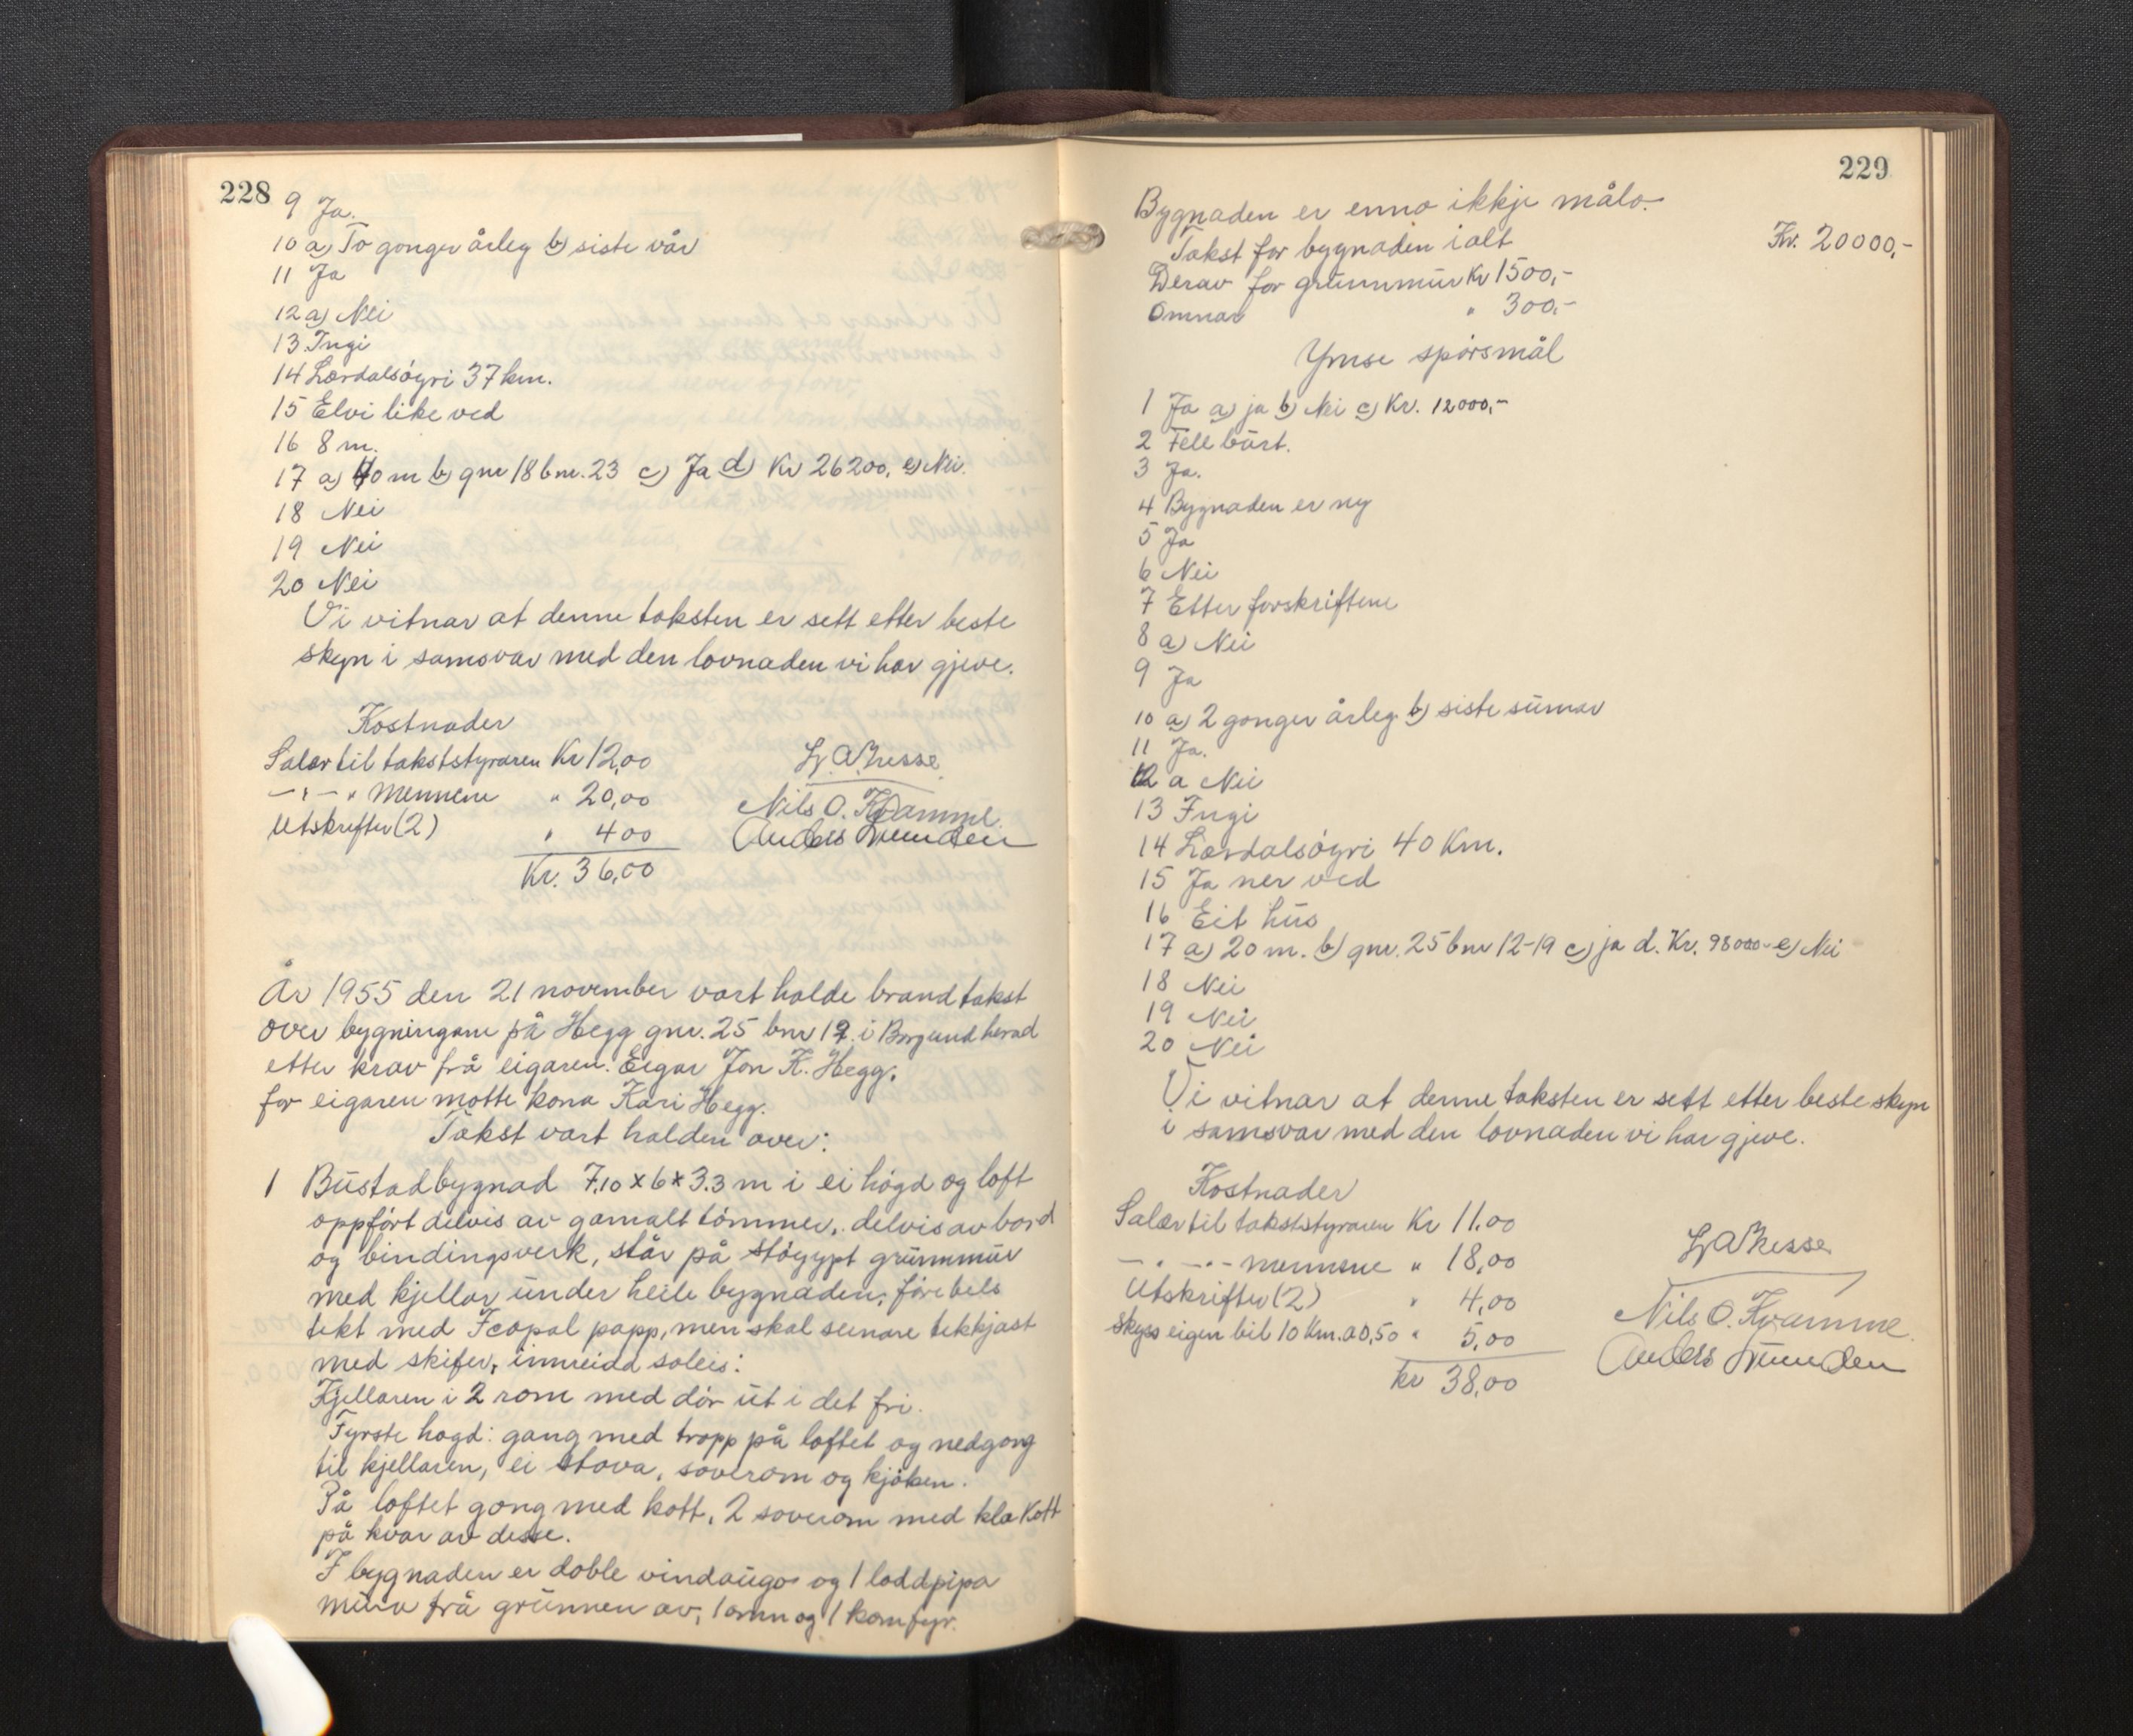 228
9 Ja.
10 a) To gonger årleg b) siste vår
11 Ja
12 a) Nei
13 Ingi
14 Lærdalsøyri 37 km.
15 Elvi like ved
16 8 m.
17 a) 40 m b) gnr 18 bnr. 23 c) Ja d) Kr 26200, e) Nei.
18 Nei
19 Nei
20 Nei
Vi vitnar at denne taksten er sett etter beste
skyn i samsvar med den lovnaden vi har gjeve.
Kostnader
Salær til takststyraren Kr 12,00
— " — " mennene " 20,00
Utskrifter (2) " 4 00
Kr. 36,00
Nils O. Kvamme
Anders
År 1955 den 21 november vart halde brandtakst
over bygningane på Hegg gnr. 25 bnr 19. i Borgund herad
etter krav frå eigaren. Eigar Jon K. Hegg.
for eigaren møtte kona Kari Hegg.
Takst vart halden over:
1 Bustadbygnad 7,10 x 6 x 3.3 m i ei høgd og loft
oppført delvis av gamalt tømmer, delvis av bord
og bindingsverk, står på støypt grunnmur
med kjellar under heile bygnaden, førebels
tekt med Icopal papp, men skal seinare tekkjast
med skifer, innreidd soleis:
Kjellaren i 2 rom med dør ut i det fri.
Fyrste høgd: gang med tropp på loftet og nedgong
til kjellaren, ei stova, soverom og kjøken.
På loftet gong med kott, 2 soverom med kle kott
på kvar av desse.
I bygnaden er doble vindaugo og 1 loddpipa
mura frå grunnen av, 1 omn og 1 komfyr.
229
Bygnaden er enno ikkje måla.
Takst for bygnaden ialt Kr. 20000,-
Derav for grunnmur Kr 1500,-
Omnar " 300,-
Ymse spørsmål
1 Ja a) ja b) Nei c) Kr. 12000,-
2 Fell burt.
3 Ja.
4 Bygnaden er ny
5 Ja
6 Nei
7 Etter forskriftene
8 a) Nei
9 Ja
10 a) 2 gonger årleg b) siste sumar
11 Ja.
12 a Nei
13 Ingi
14 Lærdalsøyri 40 Km.
15 Ja ner ved
16 Eit hus
17 a) 20 m. b) gnr. 25 bnr 12-19 c) ja d. Kr. 98000- e) Nei
18 Nei
19 Nei
20 Nei
Vi vitnar at denne taksten er sett etter beste skyn
i samsvar med den lovnaden vi har gjeve.
Kostnader
Salær til takststyraren Kr 11.00
— " — " — mennene " 18,00
Utskrifter (2) " 4,00
Skyss eigen bil 10 Km. a 0,50 " 5,00
Kr 38,00
Nils O. Kvamme.
Anders